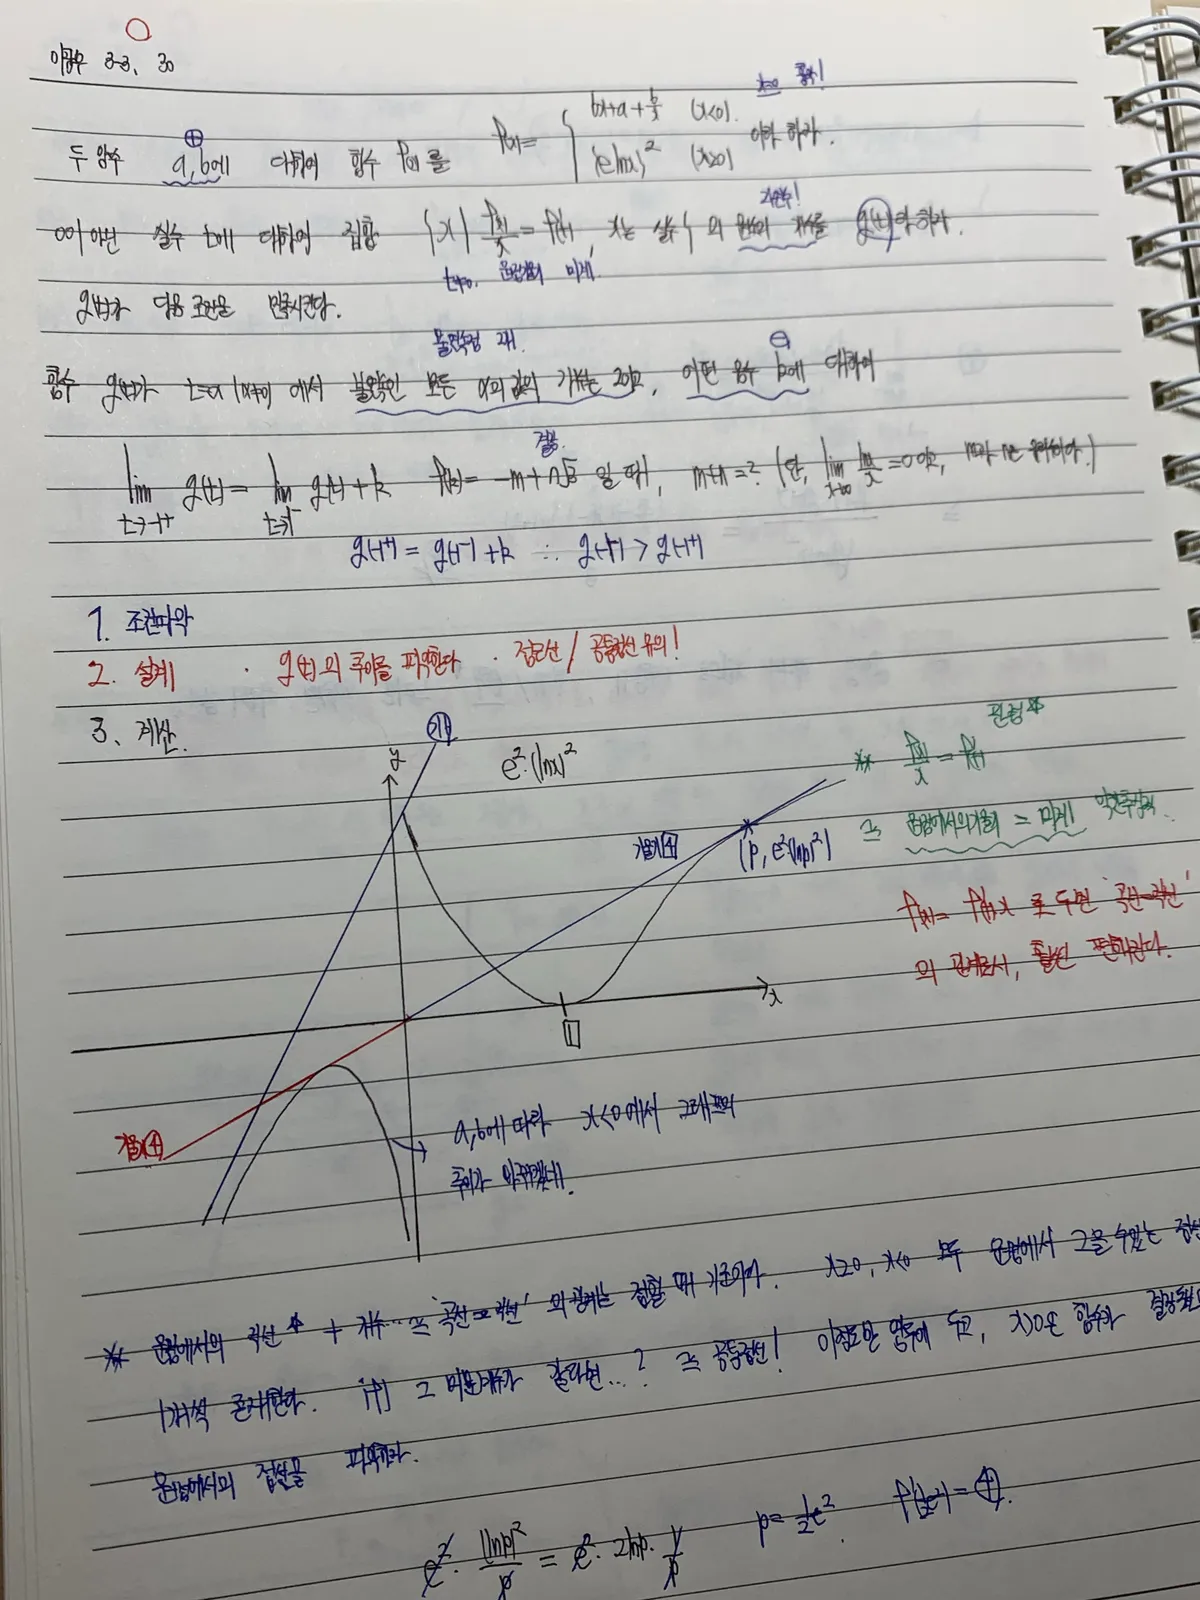 이광수 3-3, 30
x=0 폭발!
두 양수 a, b에 대하여 함수 f(x)를 f(x)= { bx+a+b/x (x<0) (elnx)² (x≥0) 이라 하자.
자연수!
0이 아닌 실수 t에 대하여 집합 {x| f(x)/x = f'(t), x는 실수}의 원소의 개수를 g(t)라 하자.
g(t)가 다음 조건을 만족시킨다.
불연속점 2개.
함수 g(t)가 t=α (α≠0)에서 불연속인 모든 α의 값의 개수는 2이고, 어떤 음수 k에 대하여
lim t→-1+ g(t) = lim t→-1- g(t) + k f(k) = -m+n√3 일 때, m+n=? (단, lim x→∞ lnx/x =0이고, m과 n은 유리수이다.)
g(-1+) = g(-1-) +k ∴ g(-1-) > g(-1+)
1. 조건파악
2. 설계 · g(t)의 추이를 파악한다 · 점근선 / 공통접선 유의!
3. 계산.
y
e²·(lnx)²
관점
** f(x)/x = f'(t)
기울기 +
(p, e²(lnp)²)
원점에서의 기울기 = 미계
f(x)= f'(t)x 로 두면 '곡선-직선'
의 관계로서, 훨씬 편해진다.
x
1
기울기 +
a,b에 따라 x<0에서 그래프의
추이가 바뀌겠네.
** 원점에서의 직선 + 개수... ≃ '곡선-직선'의 관계는 접할 때 기준이다. x≥0, x<0 모두 원점에서 그을 수 있는 접선
1개씩 존재한다. if) 그 미분계수가 같다면...? ≃ 공통접선! 이 점도 염두에 두고, x>0은 함수가 결정
원점에서의 접선을 파악하라.
e²· (lnp)²/p = e²· 2lnp· 1/p p= 1/2e². f'(1/2e²) = +.